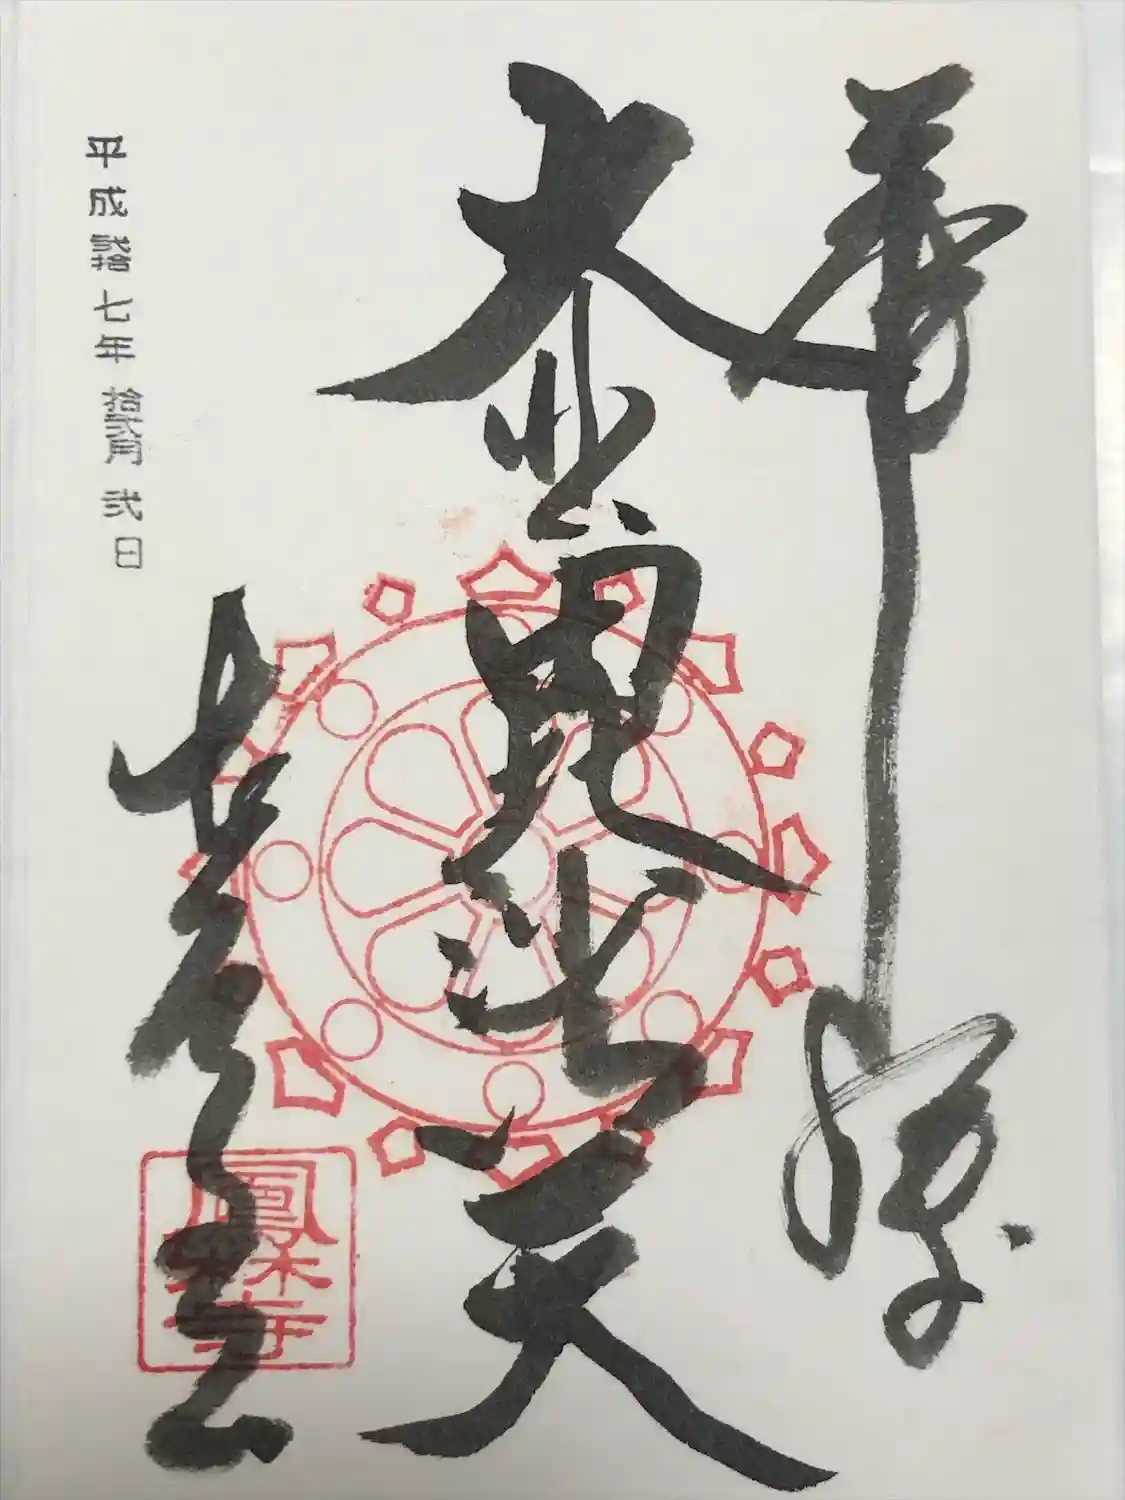 奉拝
大悲毘沙門天
平成弐拾七年拾弐月弐日
鳳林寺